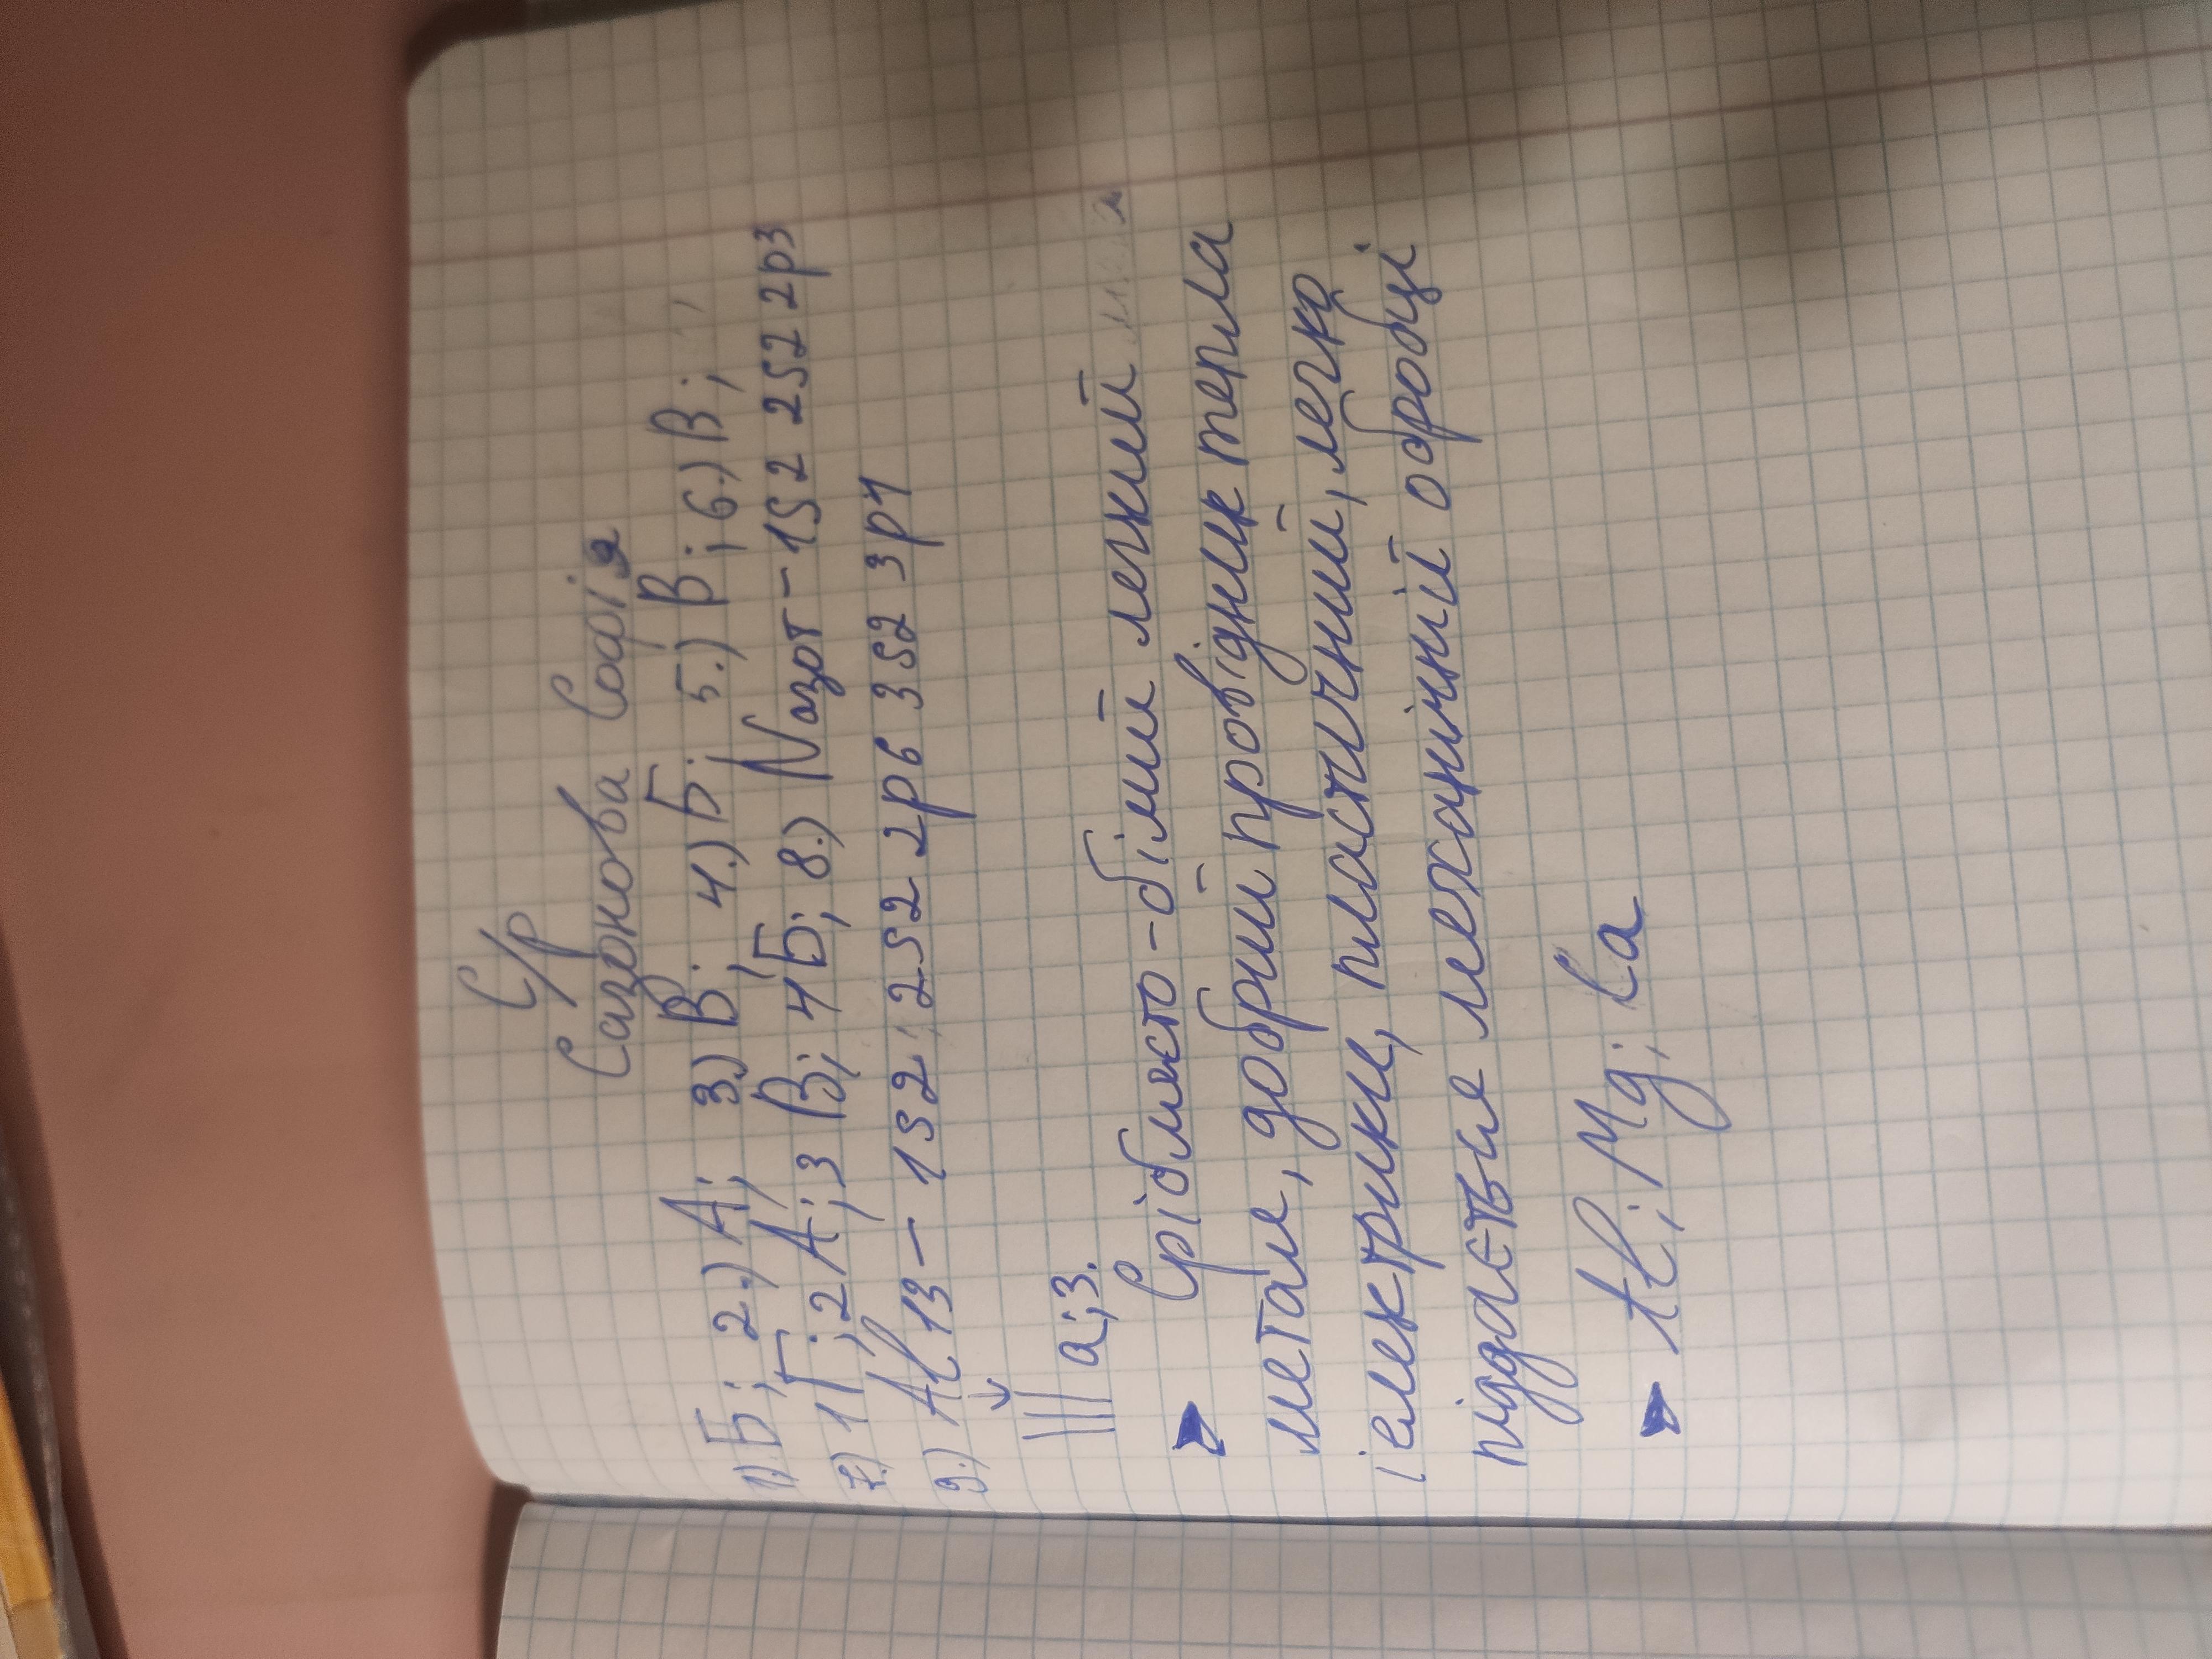 С/р
Сазонова Софія
1.) Б; 2.) А; 3.) В; 4.) Б; 5.) В; 6.) В;
7.) 1 Г; 2 А; 3 В; 4 Б; 8.) Nазот - 1s2 2s2 2p3
9.) Al 13 - 1s2 2s2 2p6 3s2 3p1
↓
III а;3.
➤ Сріблясто-білий легкий
метал, добрий провідник тепла
і електрики, пластичний, легко
піддається механічній обробці
➤ Al; Mg; Ca